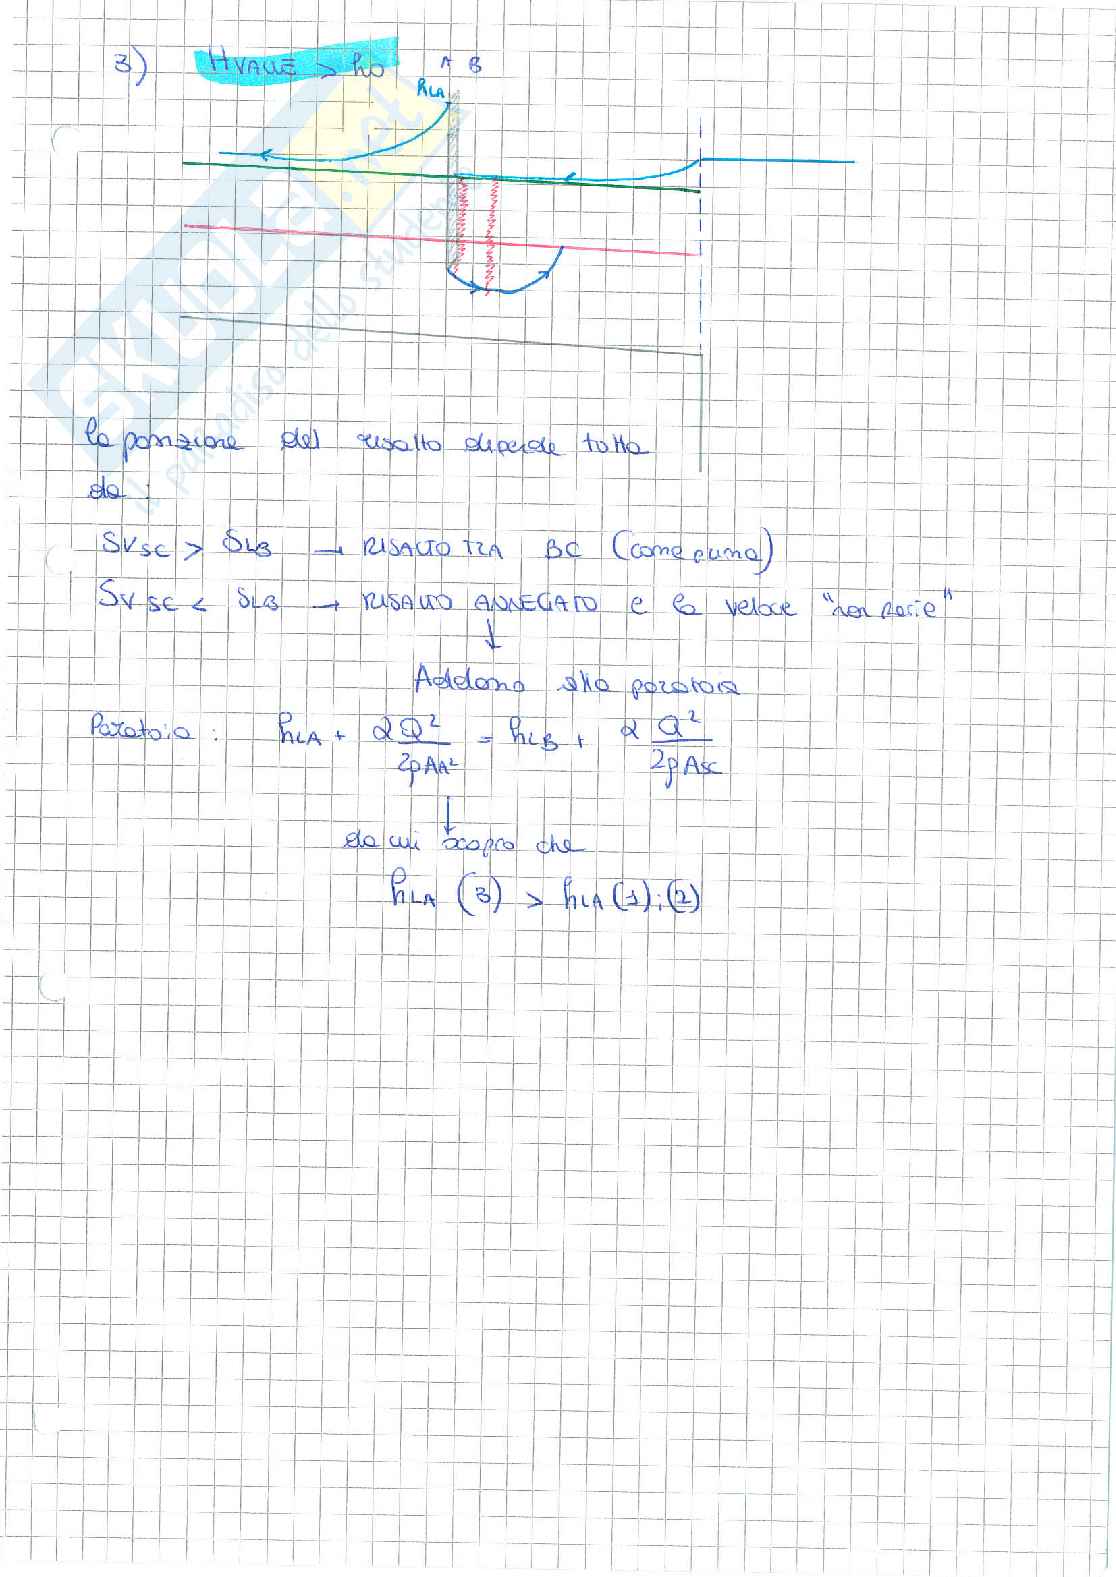 3) HVALLE > h0
A B
hLA
la posizione del risalto dipende tutta
da :
SVSC > SLB → RISALTO TRA BC (come prima)
SVSC < SLB → RISALTO ANNEGATO e la veloce "non nasce"
↓
Addosso alla paratoia
Paratoia : hLA + αQ² / 2gAA² = hLB + α Q² / 2gASC
↓
da cui scopro che
hLA (3) > hLA (1);(2)
SKUOLA.net
il paradiso dello studente